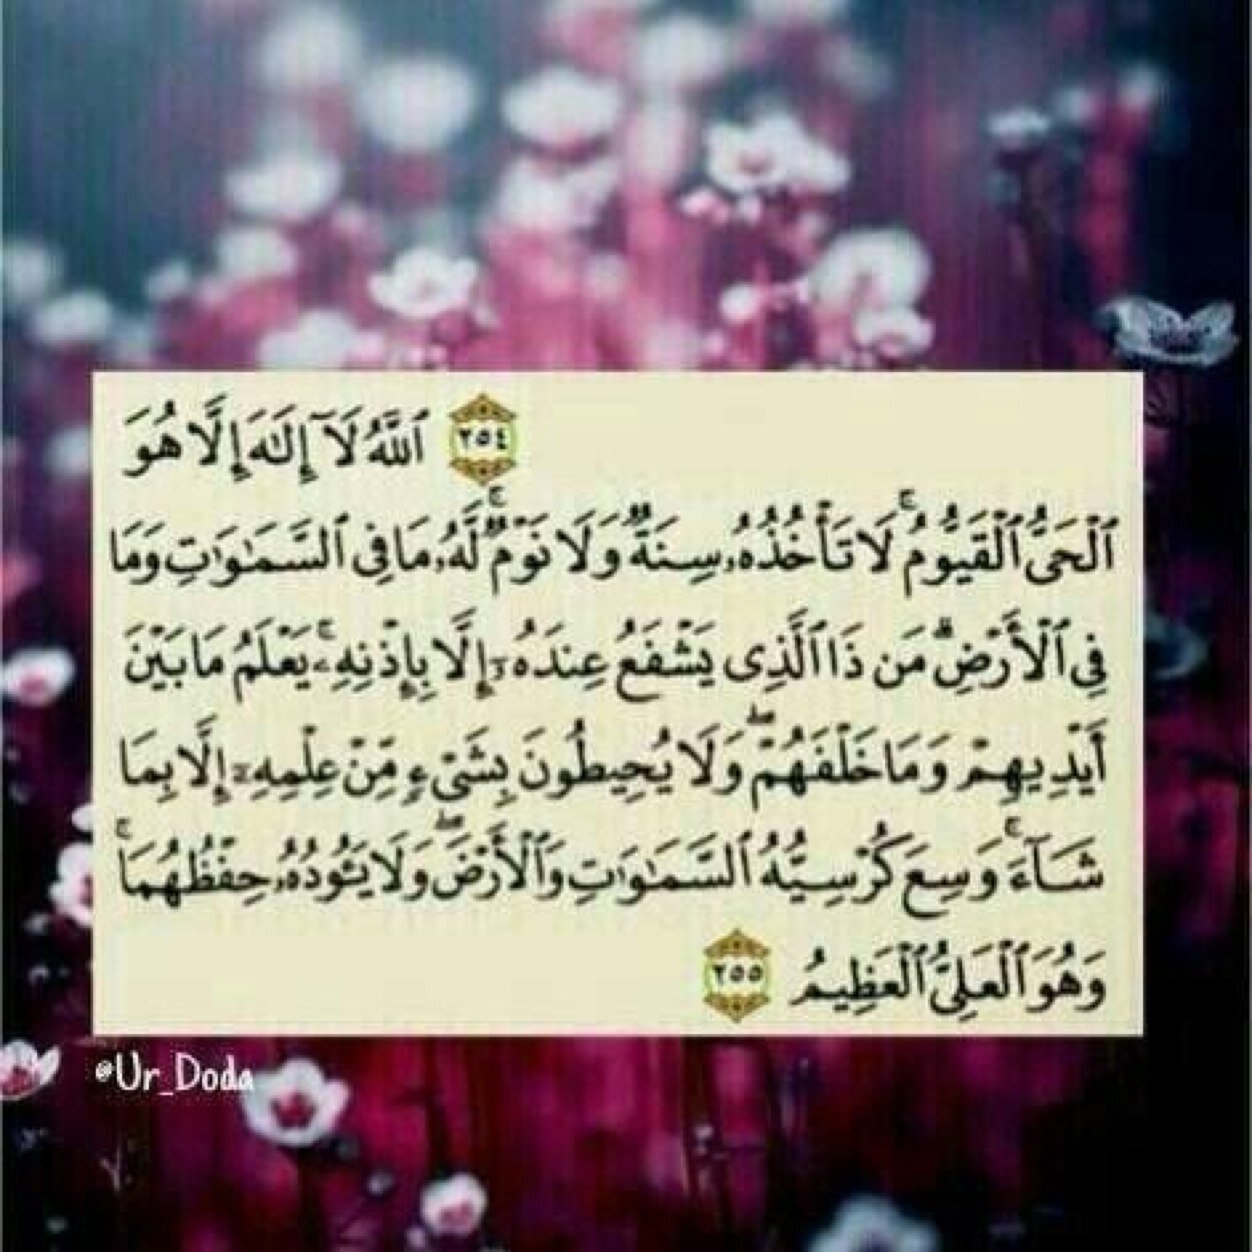 ٢٥٤ ٱللَّهُ لَآ إِلَٰهَ إِلَّا هُوَ
ٱلْحَىُّ ٱلْقَيُّومُ ۚ لَا تَأْخُذُهُۥ سِنَةٌ وَلَا نَوْمٌ ۚ لَّهُۥ مَا فِى ٱلسَّمَٰوَٰتِ وَمَا
فِى ٱلْأَرْضِ ۗ مَن ذَا ٱلَّذِى يَشْفَعُ عِندَهُۥٓ إِلَّا بِإِذْنِهِۦ ۚ يَعْلَمُ مَا بَيْنَ
أَيْدِيهِمْ وَمَا خَلْفَهُمْ ۖ وَلَا يُحِيطُونَ بِشَىْءٍ مِّنْ عِلْمِهِۦٓ إِلَّا بِمَا
شَآءَ ۚ وَسِعَ كُرْسِيُّهُ ٱلسَّمَٰوَٰتِ وَٱلْأَرْضَ ۖ وَلَا يَـُٔودُهُۥ حِفْظُهُمَا ۚ
وَهُوَ ٱلْعَلِىُّ ٱلْعَظِيمُ ٢٥٥
@Ur_Doda